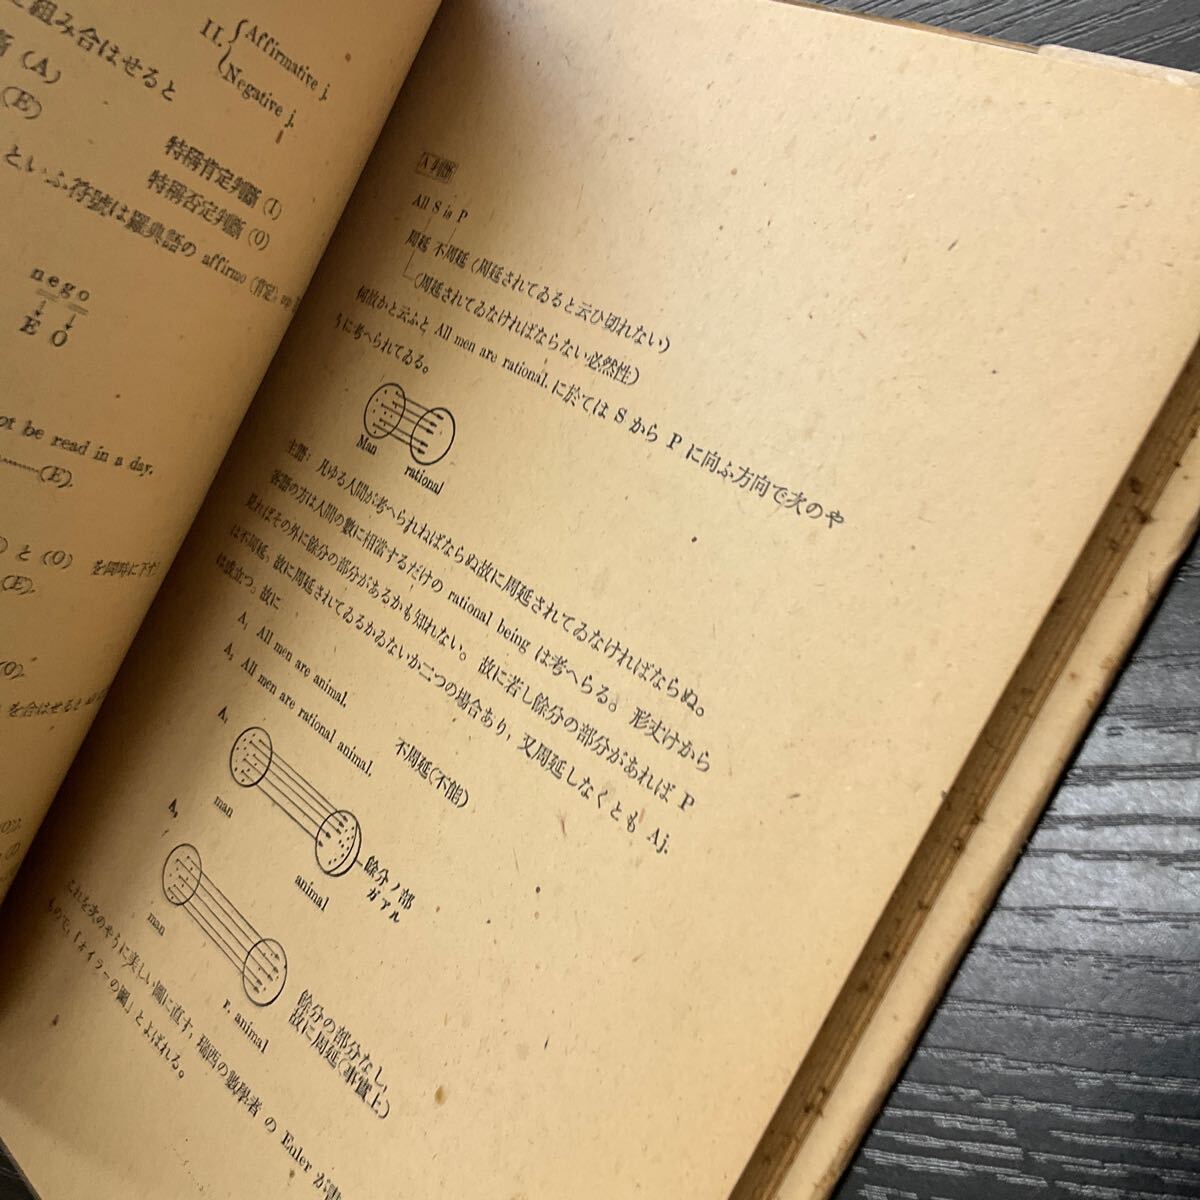 と組み合はせると
II. { Affirmative j.
Negative j.
断 (A)
(E)
特稱肯定判斷 (I)
特稱否定判斷 (O)
といふ符號は羅典語の affirmo (肯定,
nego
↓ ↓
E O
ot be read in a day.
(E).
) と (O) を同時に下す
(E).
(O).
を合はせると
(O).
A 判斷
All S is P
周延 不周延 (周延されてゐると云ひ切れない)
(周延されてゐなければならない必然性)
何故かと云ふと All men are rational. に於ては S から P に向ふ方向で次のや
うに考へられてゐる。
Man
rational
主語: 凡ゆる人間が考へられねばならぬ故に周延されてゐなければならぬ。
客語の方は人間の數に相當するだけの rational being は考へらる。形丈けから
見ればその外に餘分の部分があるかも知れない。故に若し餘分の部分があれば P
は不周延, 故に周延されてゐるかゐないか二つの場合あり, 又周延しなくとも Aj.
は成立つ。故に
A₁ All men are animal.
A₂ All men are rational animal.
A₁
不周延(不能)
man
animal
餘分ノ部
ガアル
A₂
man
r. animal
餘分の部分なし,
故に周延(事實上)
これを次のやうに美しい圖に直す, 瑞西の數學者の Euler が
もので,「オイラーの圖」とよばれる。